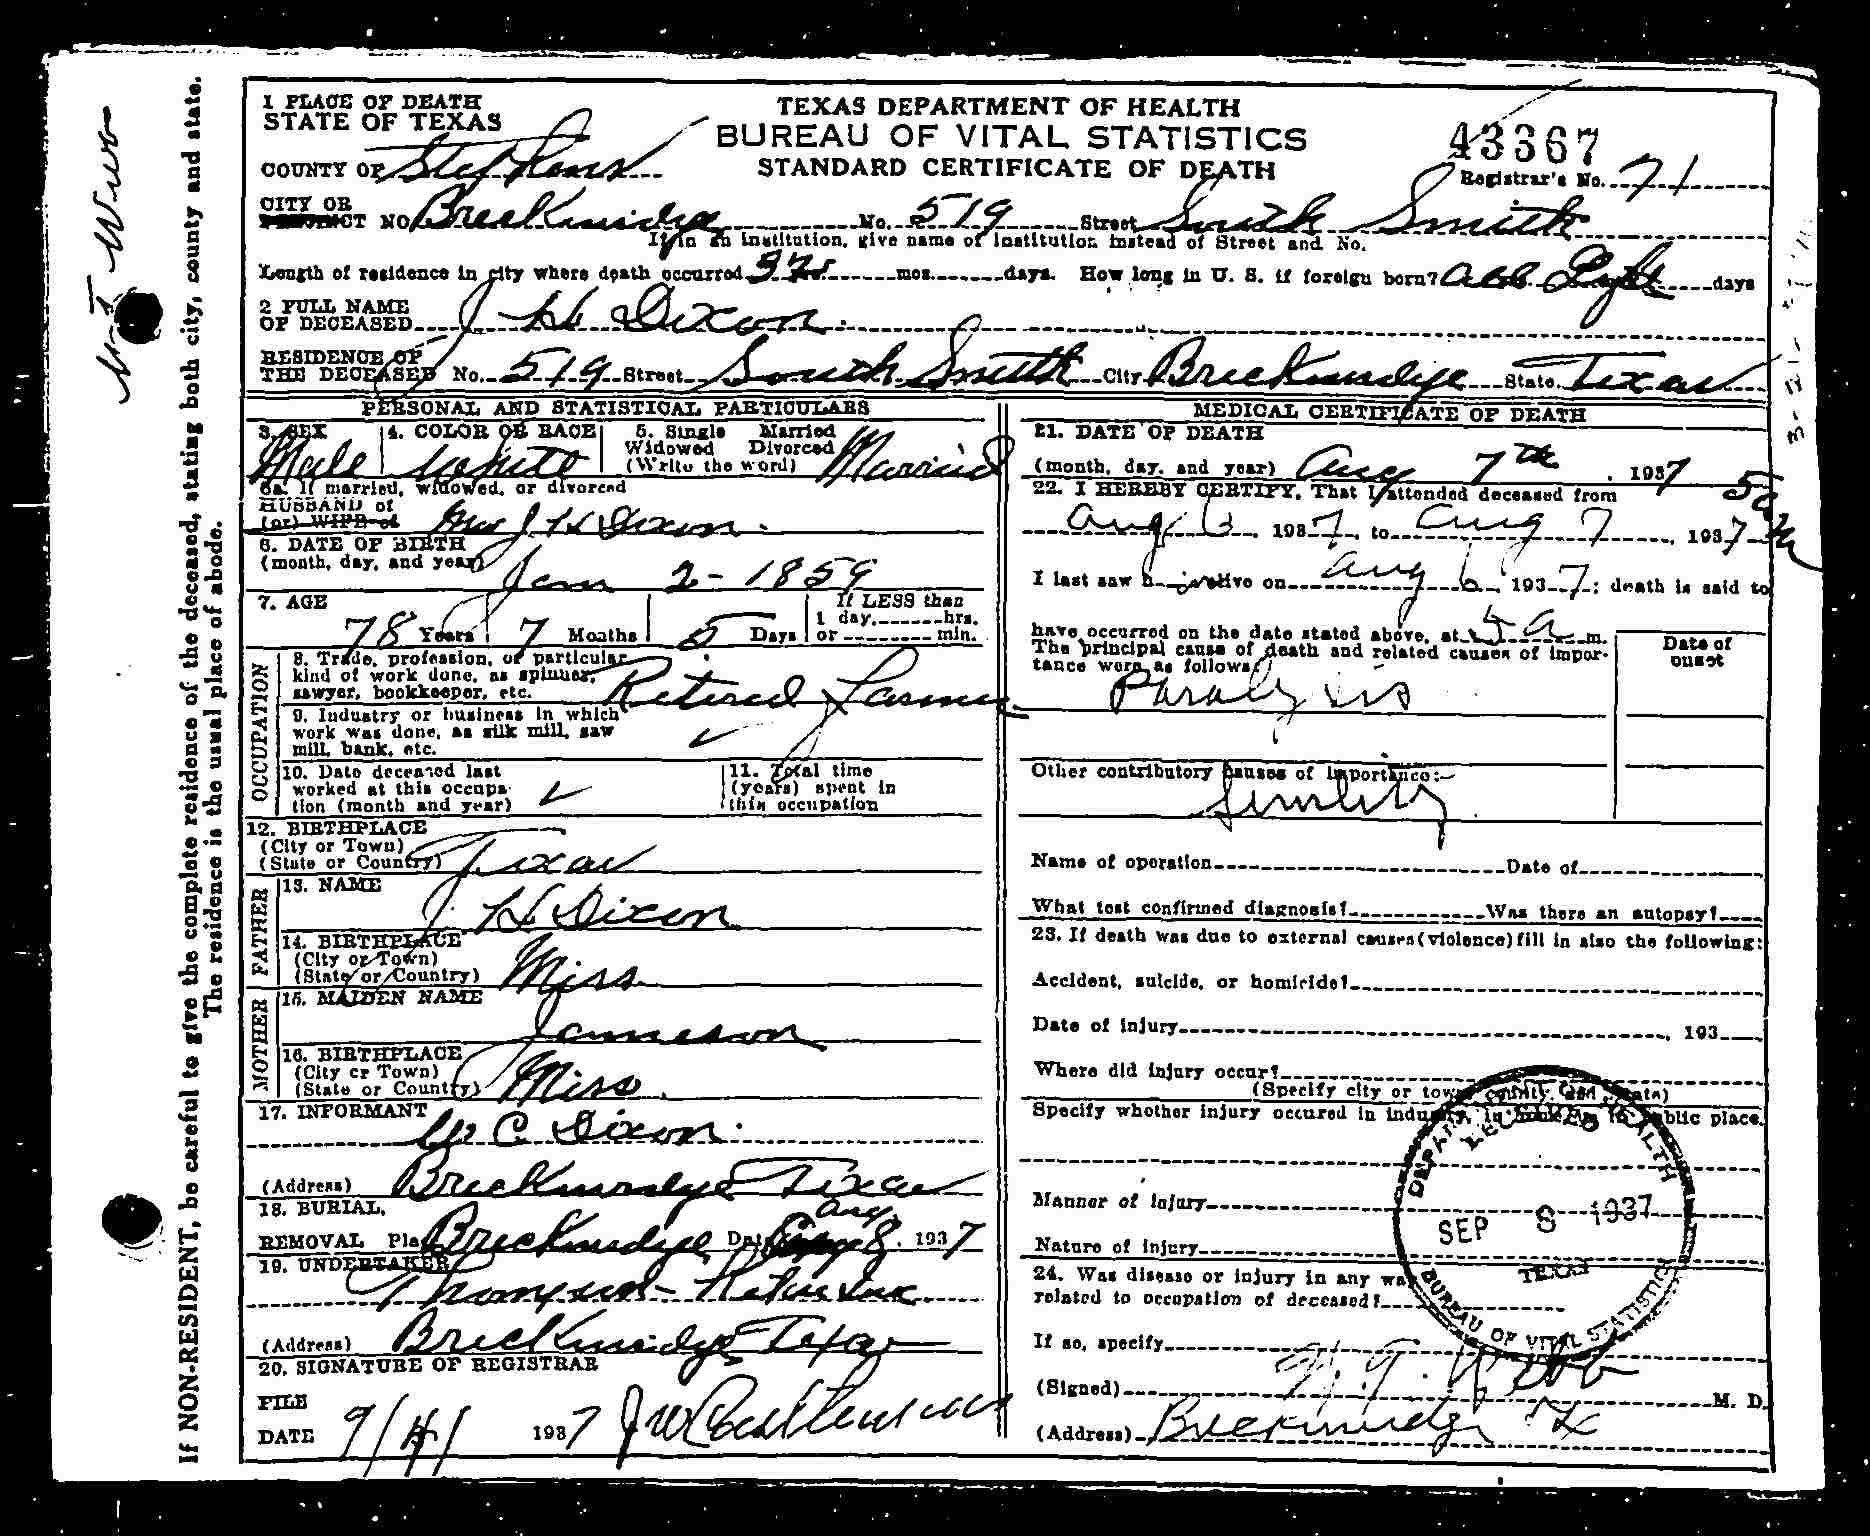 If NON-RESIDENT, be careful to give the complete residence of the deceased, stating both city, county and state.
The residence is the usual place of abode.
1 PLACE OF DEATH
STATE OF TEXAS
COUNTY OF Stephens
CITY OR
PRECINCT NO. Breckenridge
TEXAS DEPARTMENT OF HEALTH
BUREAU OF VITAL STATISTICS
STANDARD CERTIFICATE OF DEATH
43367
Registrar's No. 71
No. 519 Street South Smith
If in an institution, give name of institution instead of Street and No.
Length of residence in city where death occurred mos. days. How long in U. S. if foreign born? Life days
2 FULL NAME
OF DECEASED J H Dixon
RESIDENCE OF
THE DECEASED No. 519 Street South Smith City Breckenridge State Texas
PERSONAL AND STATISTICAL PARTICULARS
3. SEX Male
4. COLOR OR RACE White
5. Single Married
Widowed Divorced
(Write the word) Married
6a. If married, widowed, or divorced
HUSBAND of
(or) WIFE of Mrs J H Dixon.
6. DATE OF BIRTH
(month, day, and year) Jan 2 - 1859
7. AGE
78 Years 7 Months 5 Days
If LESS than
1 day, hrs.
or min.
OCCUPATION
8. Trade, profession, or particular
kind of work done, as spinner,
sawyer, bookkeeper, etc. Retired Farmer
9. Industry or business in which
work was done, as silk mill, saw
mill, bank, etc. ✓
10. Date deceased last
worked at this occupa-
tion (month and year) ✓
11. Total time
(years) spent in
this occupation
12. BIRTHPLACE
(City or Town)
(State or Country) Texas
FATHER
13. NAME
J. H Dixon
14. BIRTHPLACE
(City or Town)
(State or Country) Miss
MOTHER
15. MAIDEN NAME
Jameson
16. BIRTHPLACE
(City or Town)
(State or Country) Miss.
17. INFORMANT
W C Dixon.
(Address) Breckenridge Texas
18. BURIAL,
REMOVAL Place Breckenridge Date Aug 8, 1937
19. UNDERTAKER
(Address) Breckenridge Texas
20. SIGNATURE OF REGISTRAR
FILE
DATE 1937
MEDICAL CERTIFICATE OF DEATH
21. DATE OF DEATH
(month, day, and year) Aug 7th, 1937
5 am
22. I HEREBY CERTIFY, That I attended deceased from
Aug 6, 1937, to Aug 7, 1937
I last saw him alive on Aug 6, 1937; death is said to
have occurred on the date stated above, at 5 a m.
The principal cause of death and related causes of impor-
tance were as follows:
Date of
onset
Paralysis
Other contributory causes of importance:
Senility
Name of operation Date of
What test confirmed diagnosis? Was there an autopsy?
23. If death was due to external causes (violence) fill in also the following:
Accident, suicide, or homicide?
Date of injury , 193
Where did injury occur?
(Specify city or town, county, and State)
Specify whether injury occured in industry, in home, or in public place.
Manner of injury
Nature of injury
24. Was disease or injury in any way
related to occupation of deceased?
If so, specify
(Signed) Webb M. D.
(Address) Breckenridge Tx
DEPARTMENT OF HEALTH
RECEIVED
SEP 8 1937
TEXAS
BUREAU OF VITAL STATISTICS